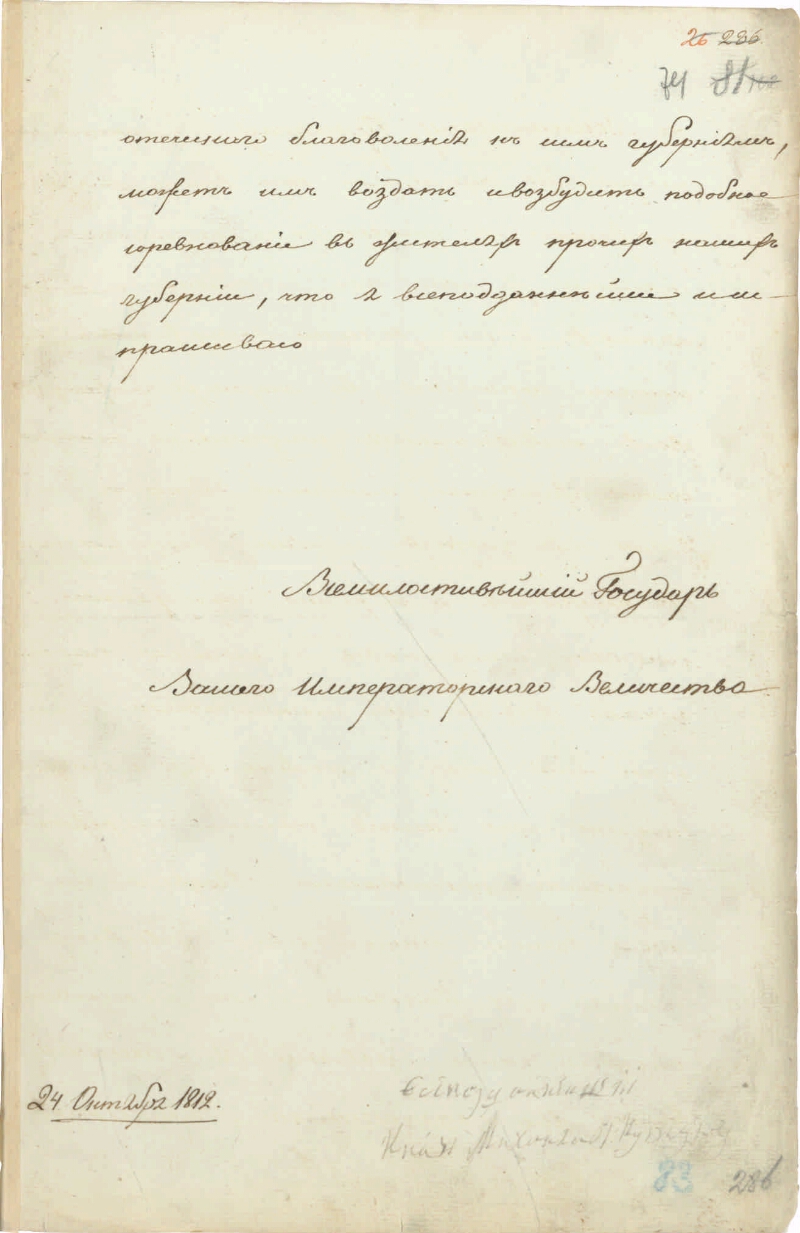 26 286.
74 81
отеческаго благоволенія къ симъ губерніямъ,
можетъ имъ воздать ивозбудить подобное
соревнованіе въ жителяхъ прочихъ нашихъ
губерніи, что я всеподданнѣйше ис-
прашиваю
Всемилостивѣйшій Государь
Вашего Императорскаго Величества
24 Октября 1812.
всеподданнѣйшій
Князь Михаилъ Г Кутузовъ
83 286